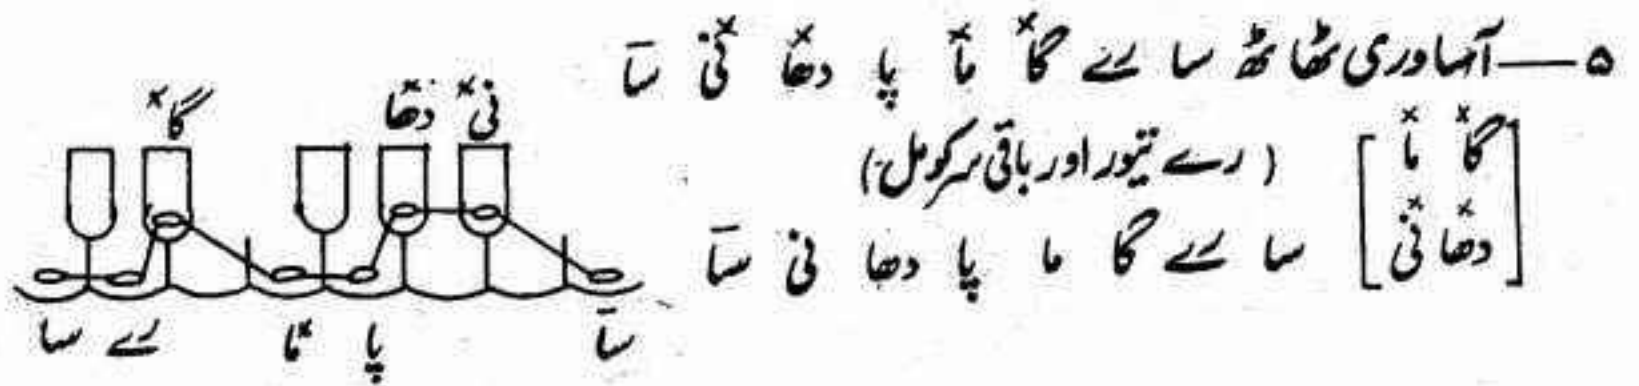 ۵— آساوری ٹھاٹھ سا رے گا× ما× پا دھا× نی× سا
[گا× ما× (رے تیور اور باقی سر کومل)
دھا× نی×] سا رے گا ما پا دھا نی سا
گا× دھا× نی×
سا رے ما× پا سا